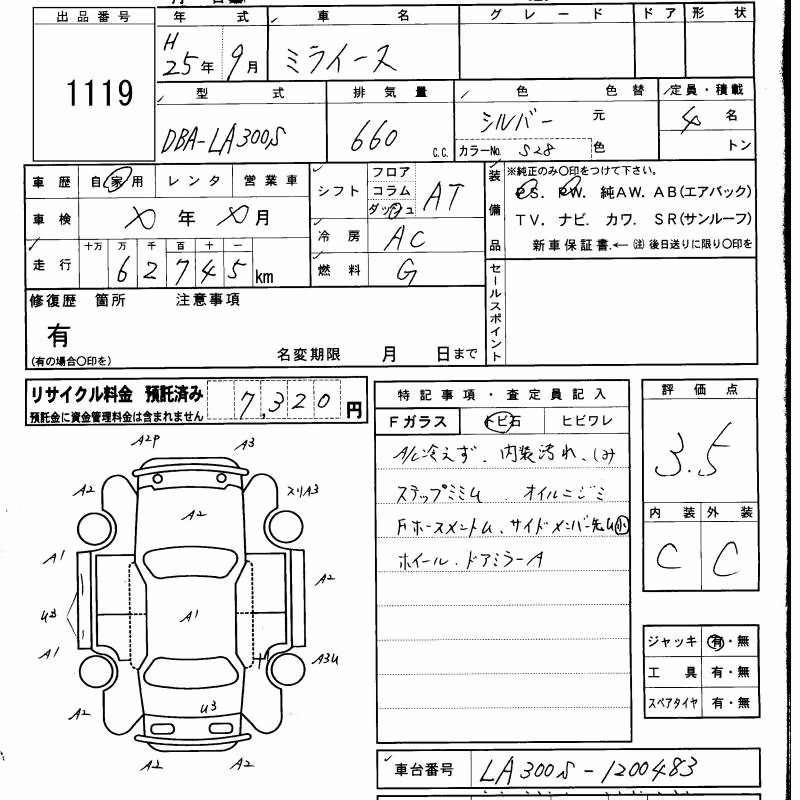 出品番号
1119
年 式
H
25年 9月
車 名
ミライース
グレード
ドア
形 状
型 式
DBA-LA300S
排気量
660 c.c.
色 色替
シルバー 元
カラーNo. S28 色
定員・積載
4 名
トン
車歴 自家用 レンタ 営業車
車検 年 月
走行 十万 万 千 百 十 一
62745km
シフト フロア
コラム
ダッシュ
AT
冷房 AC
燃料 G
装備品
※純正のみ〇印をつけて下さい。
PS. PW. 純AW. AB(エアバック)
TV. ナビ. カワ. SR(サンルーフ)
新車保証書.← (注)後日送りに限り〇印を
セールスポイント
修復歴 箇所 注意事項
有
(有の場合〇印を)
名変期限 月 日まで
リサイクル料金 預託済み
預託金に資金管理料金は含まれません
7,320 円
特記事項・査定員記入
Fガラス トビ石 ヒビワレ
A/C冷えず. 内装汚れ、シミ
ステップミミム オイルニジミ
Fホースメントム、サイドメンバー先ム小
ホイール. ドアミラーA
評価点
3.5
内装 外装
C C
ジャッキ 有・無
工具 有・無
スペアタイヤ 有・無
車台番号 LA300S-1200483
A2P A3
A2 スリA3
A2
A1 A2
A1
U3
A1 A3U
A2 U3
A2 A2